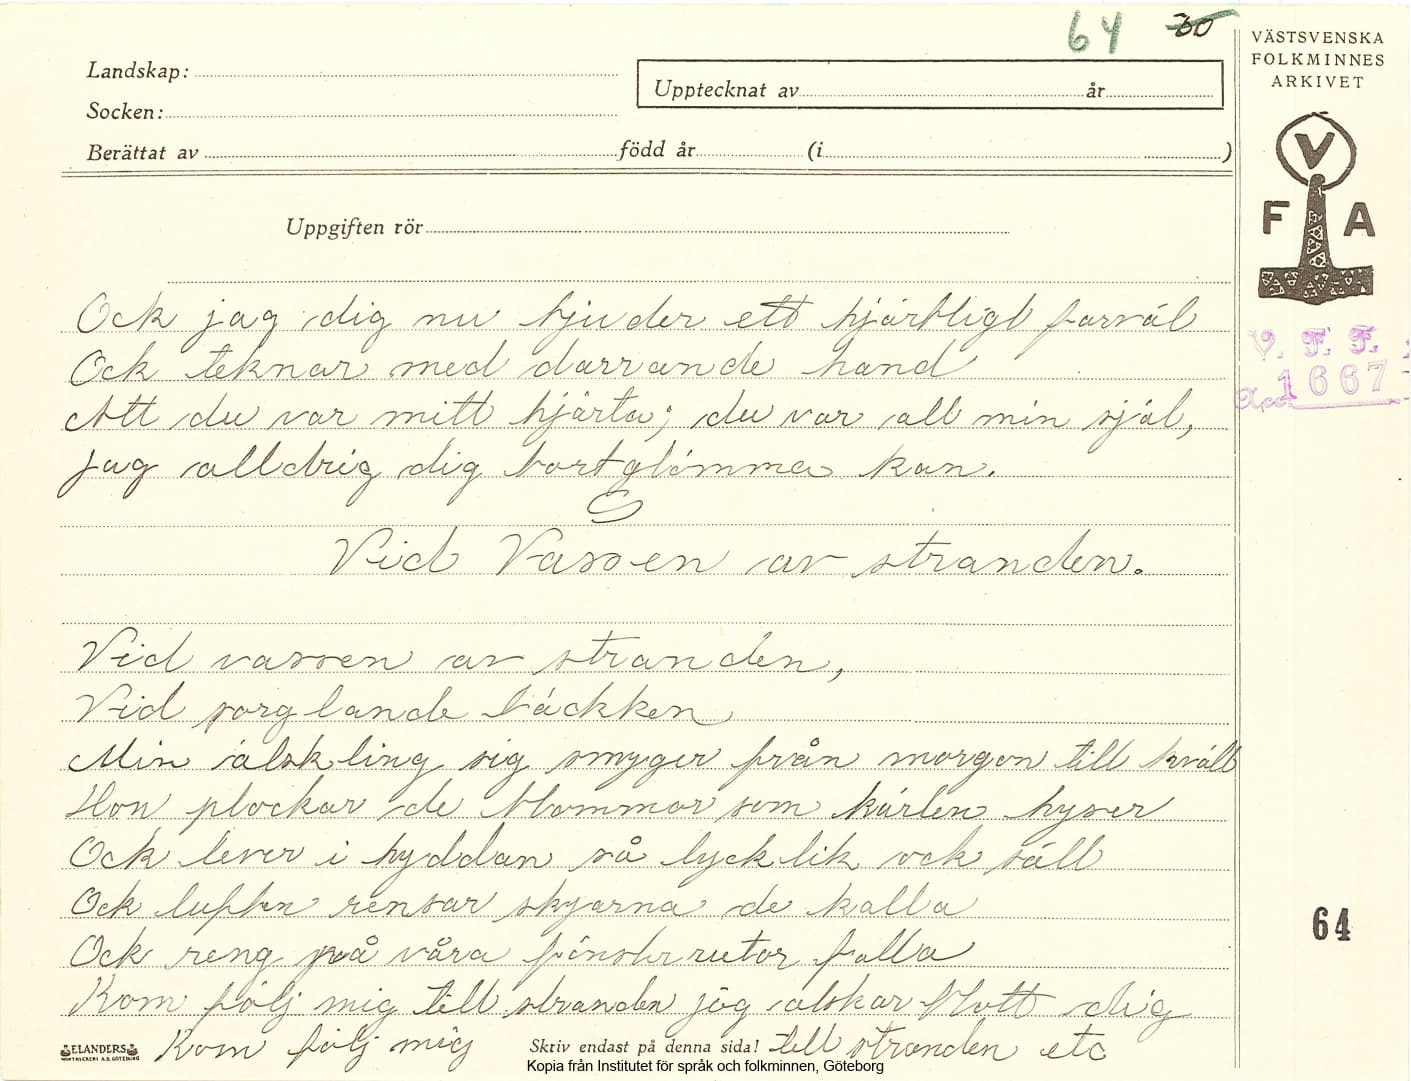 64 30
VÄSTSVENSKA
FOLKMINNES
ARKIVET
Landskap:
Upptecknat av år
Socken:
Berättat av född år (i )
V
F A
Uppgiften rör
Ock jag dig nu bjuder ett hjärtligt farväl
V. F. F.
Ock teknar med darrande hand
Acc. 1667
Att du var mitt hjärta; du var all min själ,
jag alldrig dig bortglömma kan.
Vid Vassen av stranden.
Vid vassen av stranden,
Vid sorglande bäckken
Min älskling sig smyger från morgon till kväll
Hon plockar de blommor som kärlen hyser
Ock lever i hyddan så lycklik ock säll
Ock luften rensar skyarna de kalla
64
Ock reng på våra fönster rutor falla
Kom följ mig till stranden jög älskar blott dig
ELANDERS
Kom följ mig till stranden etc
Skriv endast på denna sida!
Kopia från Institutet för språk och folkminnen, Göteborg